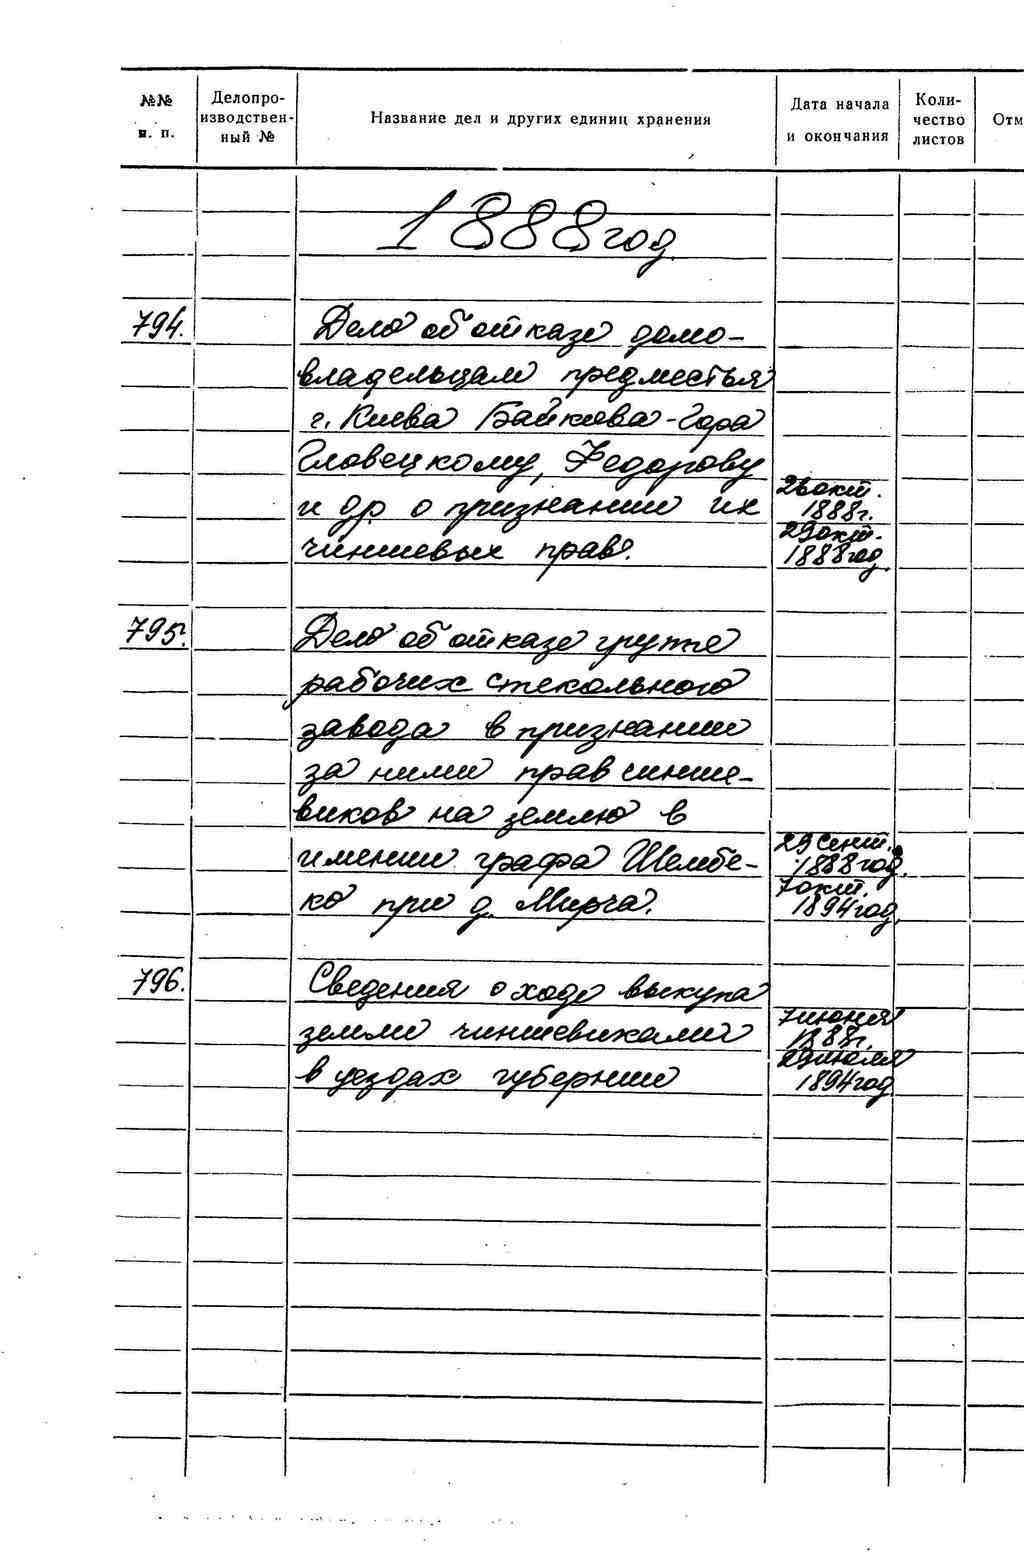 №№
п. п.
Делопро-
изводствен-
ный №
Название дел и других единиц хранения
Дата начала
и окончания
Коли-
чество
листов
Отм
1888 год.
794.
Дело об отказе домо-
владельцам предместья
г. Киева Байкова-Гора
Гловецкому, Федорову
и др. о признании их
чиншевых прав.
26 окт.
1888 г.
29 окт.
1888 год.
795.
Дело об отказе группе
рабочих стекольного
завода в признании
за ними прав чинше-
виков на землю в
имении графа Шембе-
ко при д. Мирча.
29 сент.
1888 год.
7 окт.
1894 год.
796.
Сведения о ходе выкупа
земли чиншевиками
в уездах губернии
7 июня
1888 г.
29 июля
1894 год